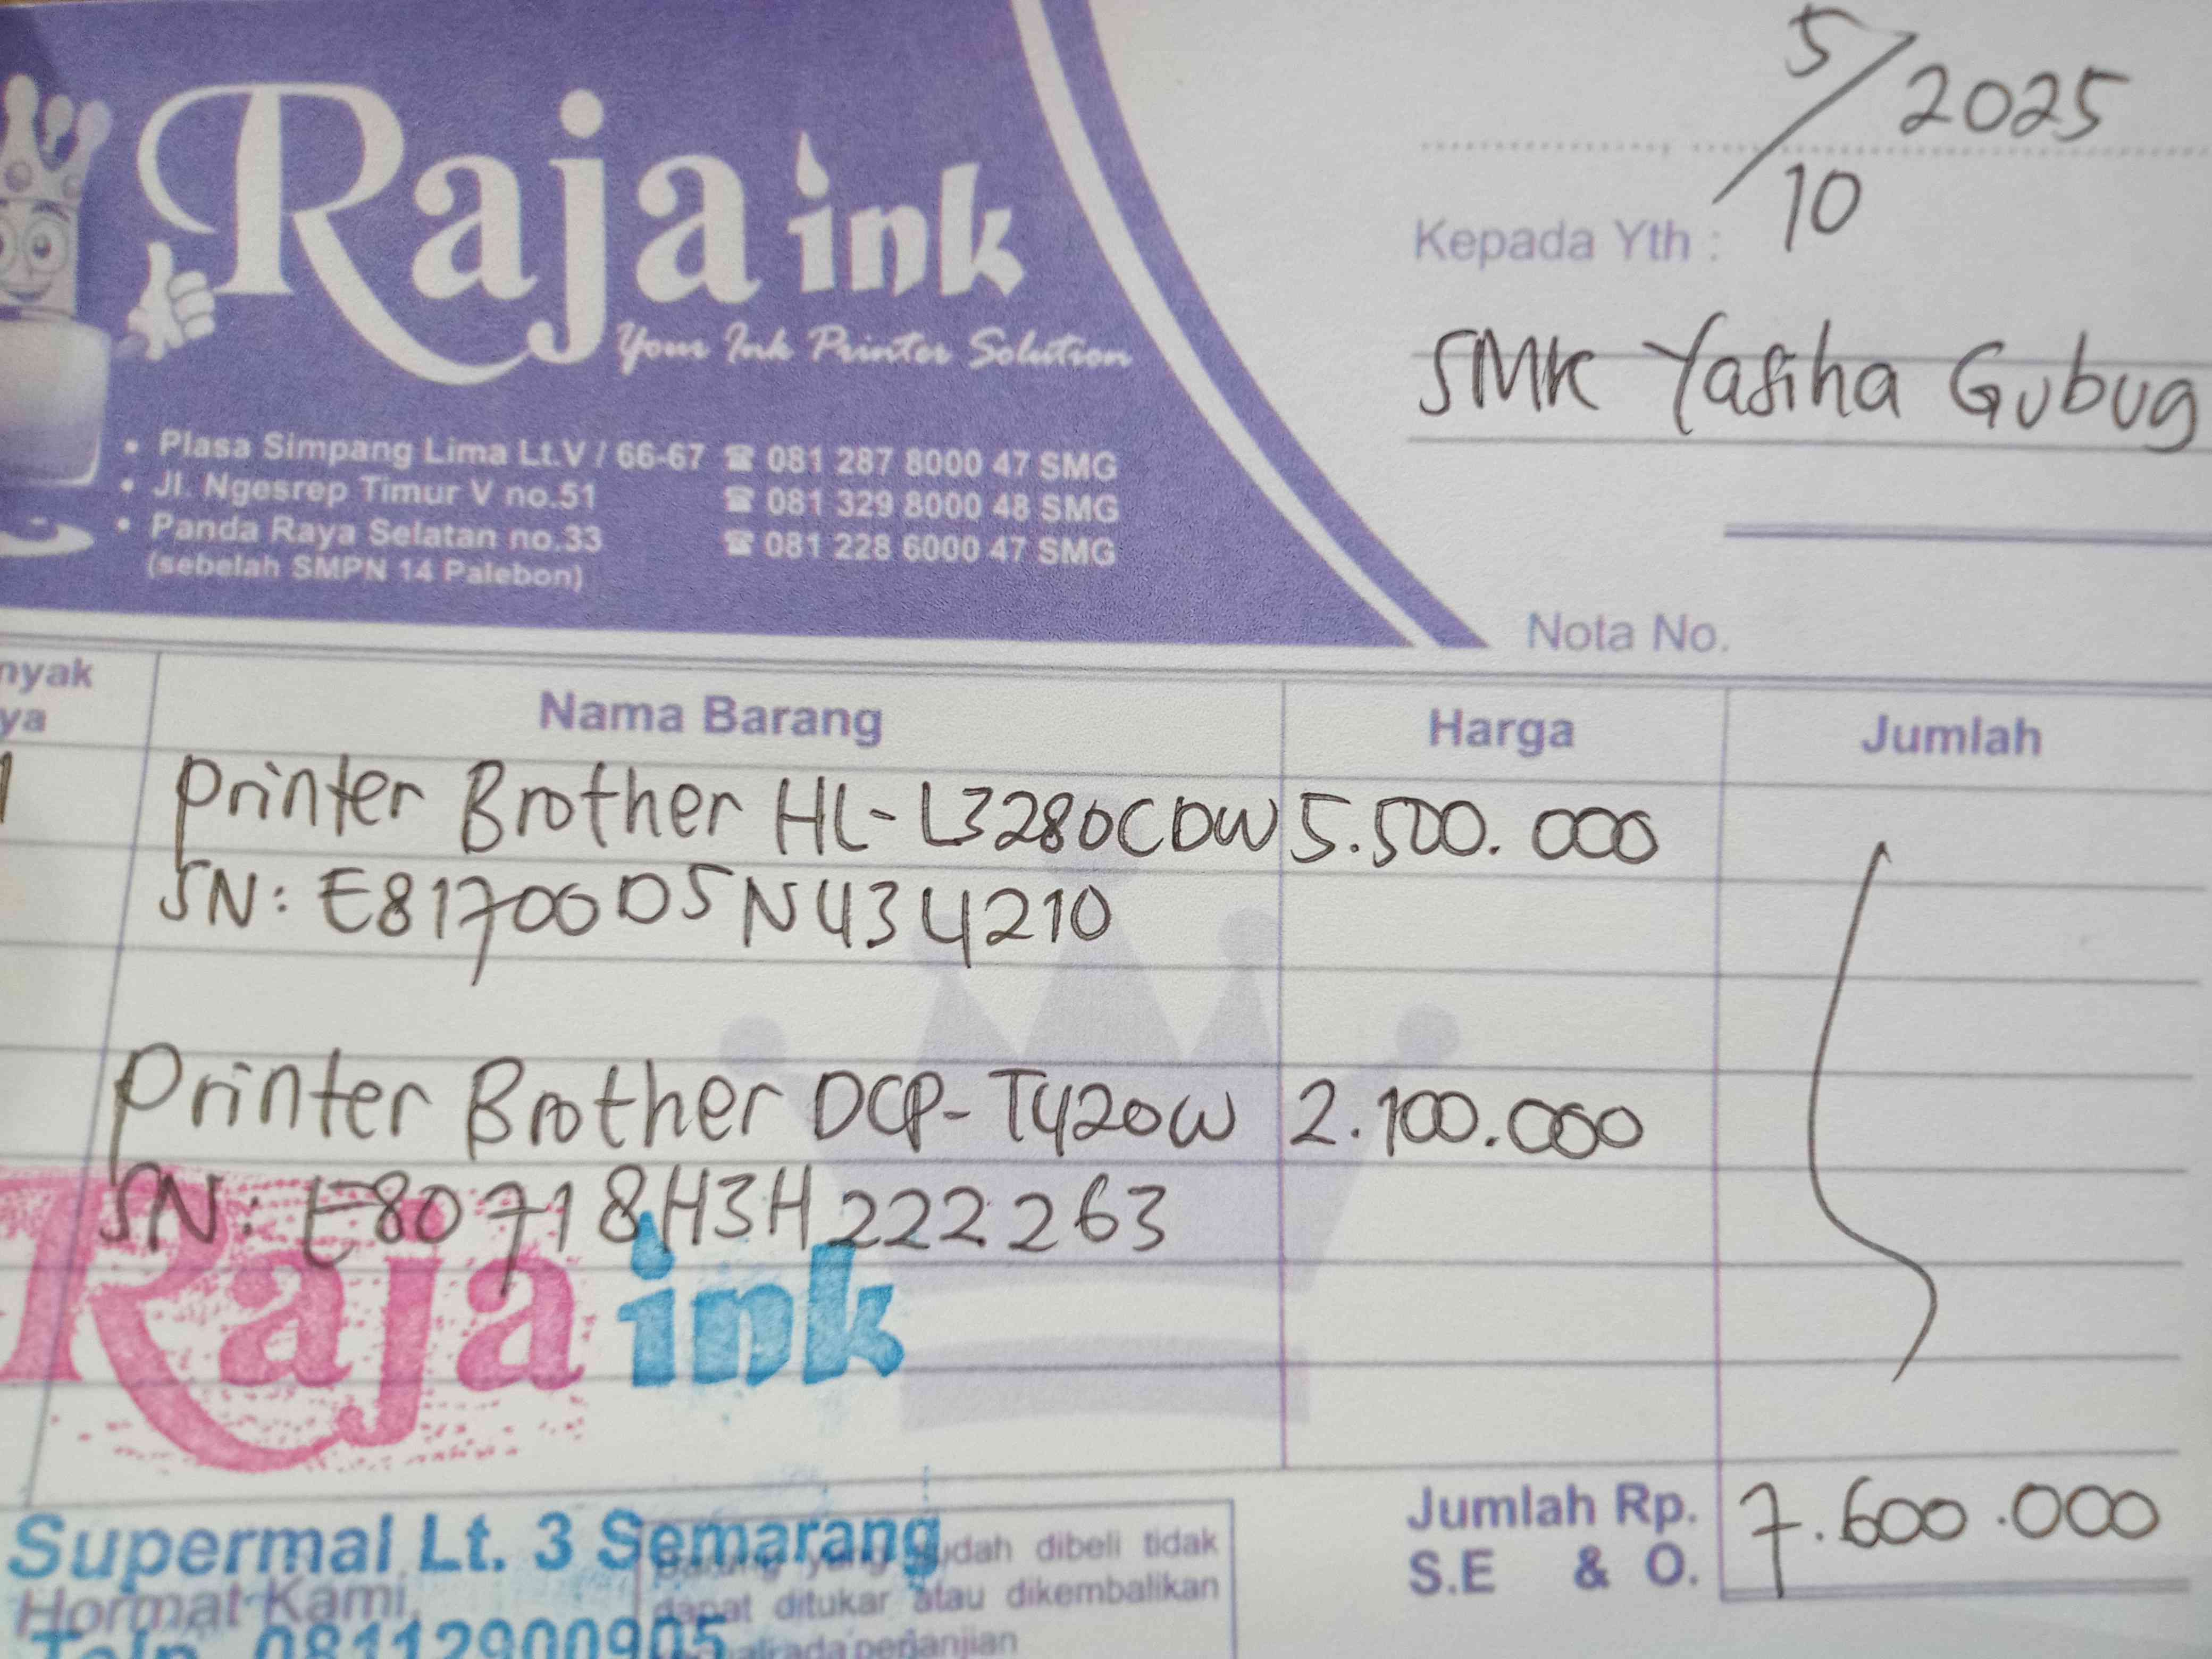 Raja ink
Your Ink Printer Solution
• Plasa Simpang Lima Lt.V / 66-67 ☎ 081 287 8000 47 SMG
• Jl. Ngesrep Timur V no.51 ☎ 081 329 8000 48 SMG
• Panda Raya Selatan no.33 ☎ 081 228 6000 47 SMG
(sebelah SMPN 14 Palebon)
5/10 2025
Kepada Yth :
SMK Yasiha Gubug
Nota No.
nyak
ya
Nama Barang Harga Jumlah
1 Printer Brother HL-L3280CDW 5.500.000
SN: E81700D5N434210
Printer Brother DCP-T420W 2.100.000
SN: E80718H3H222263
Raja ink
Supermal Lt. 3 Semarang
Hormat Kami,
Telp. 08112900905
Barang yang sudah dibeli tidak
dapat ditukar atau dikembalikan
perjanjian
Jumlah Rp. 7.600.000
S.E & O.